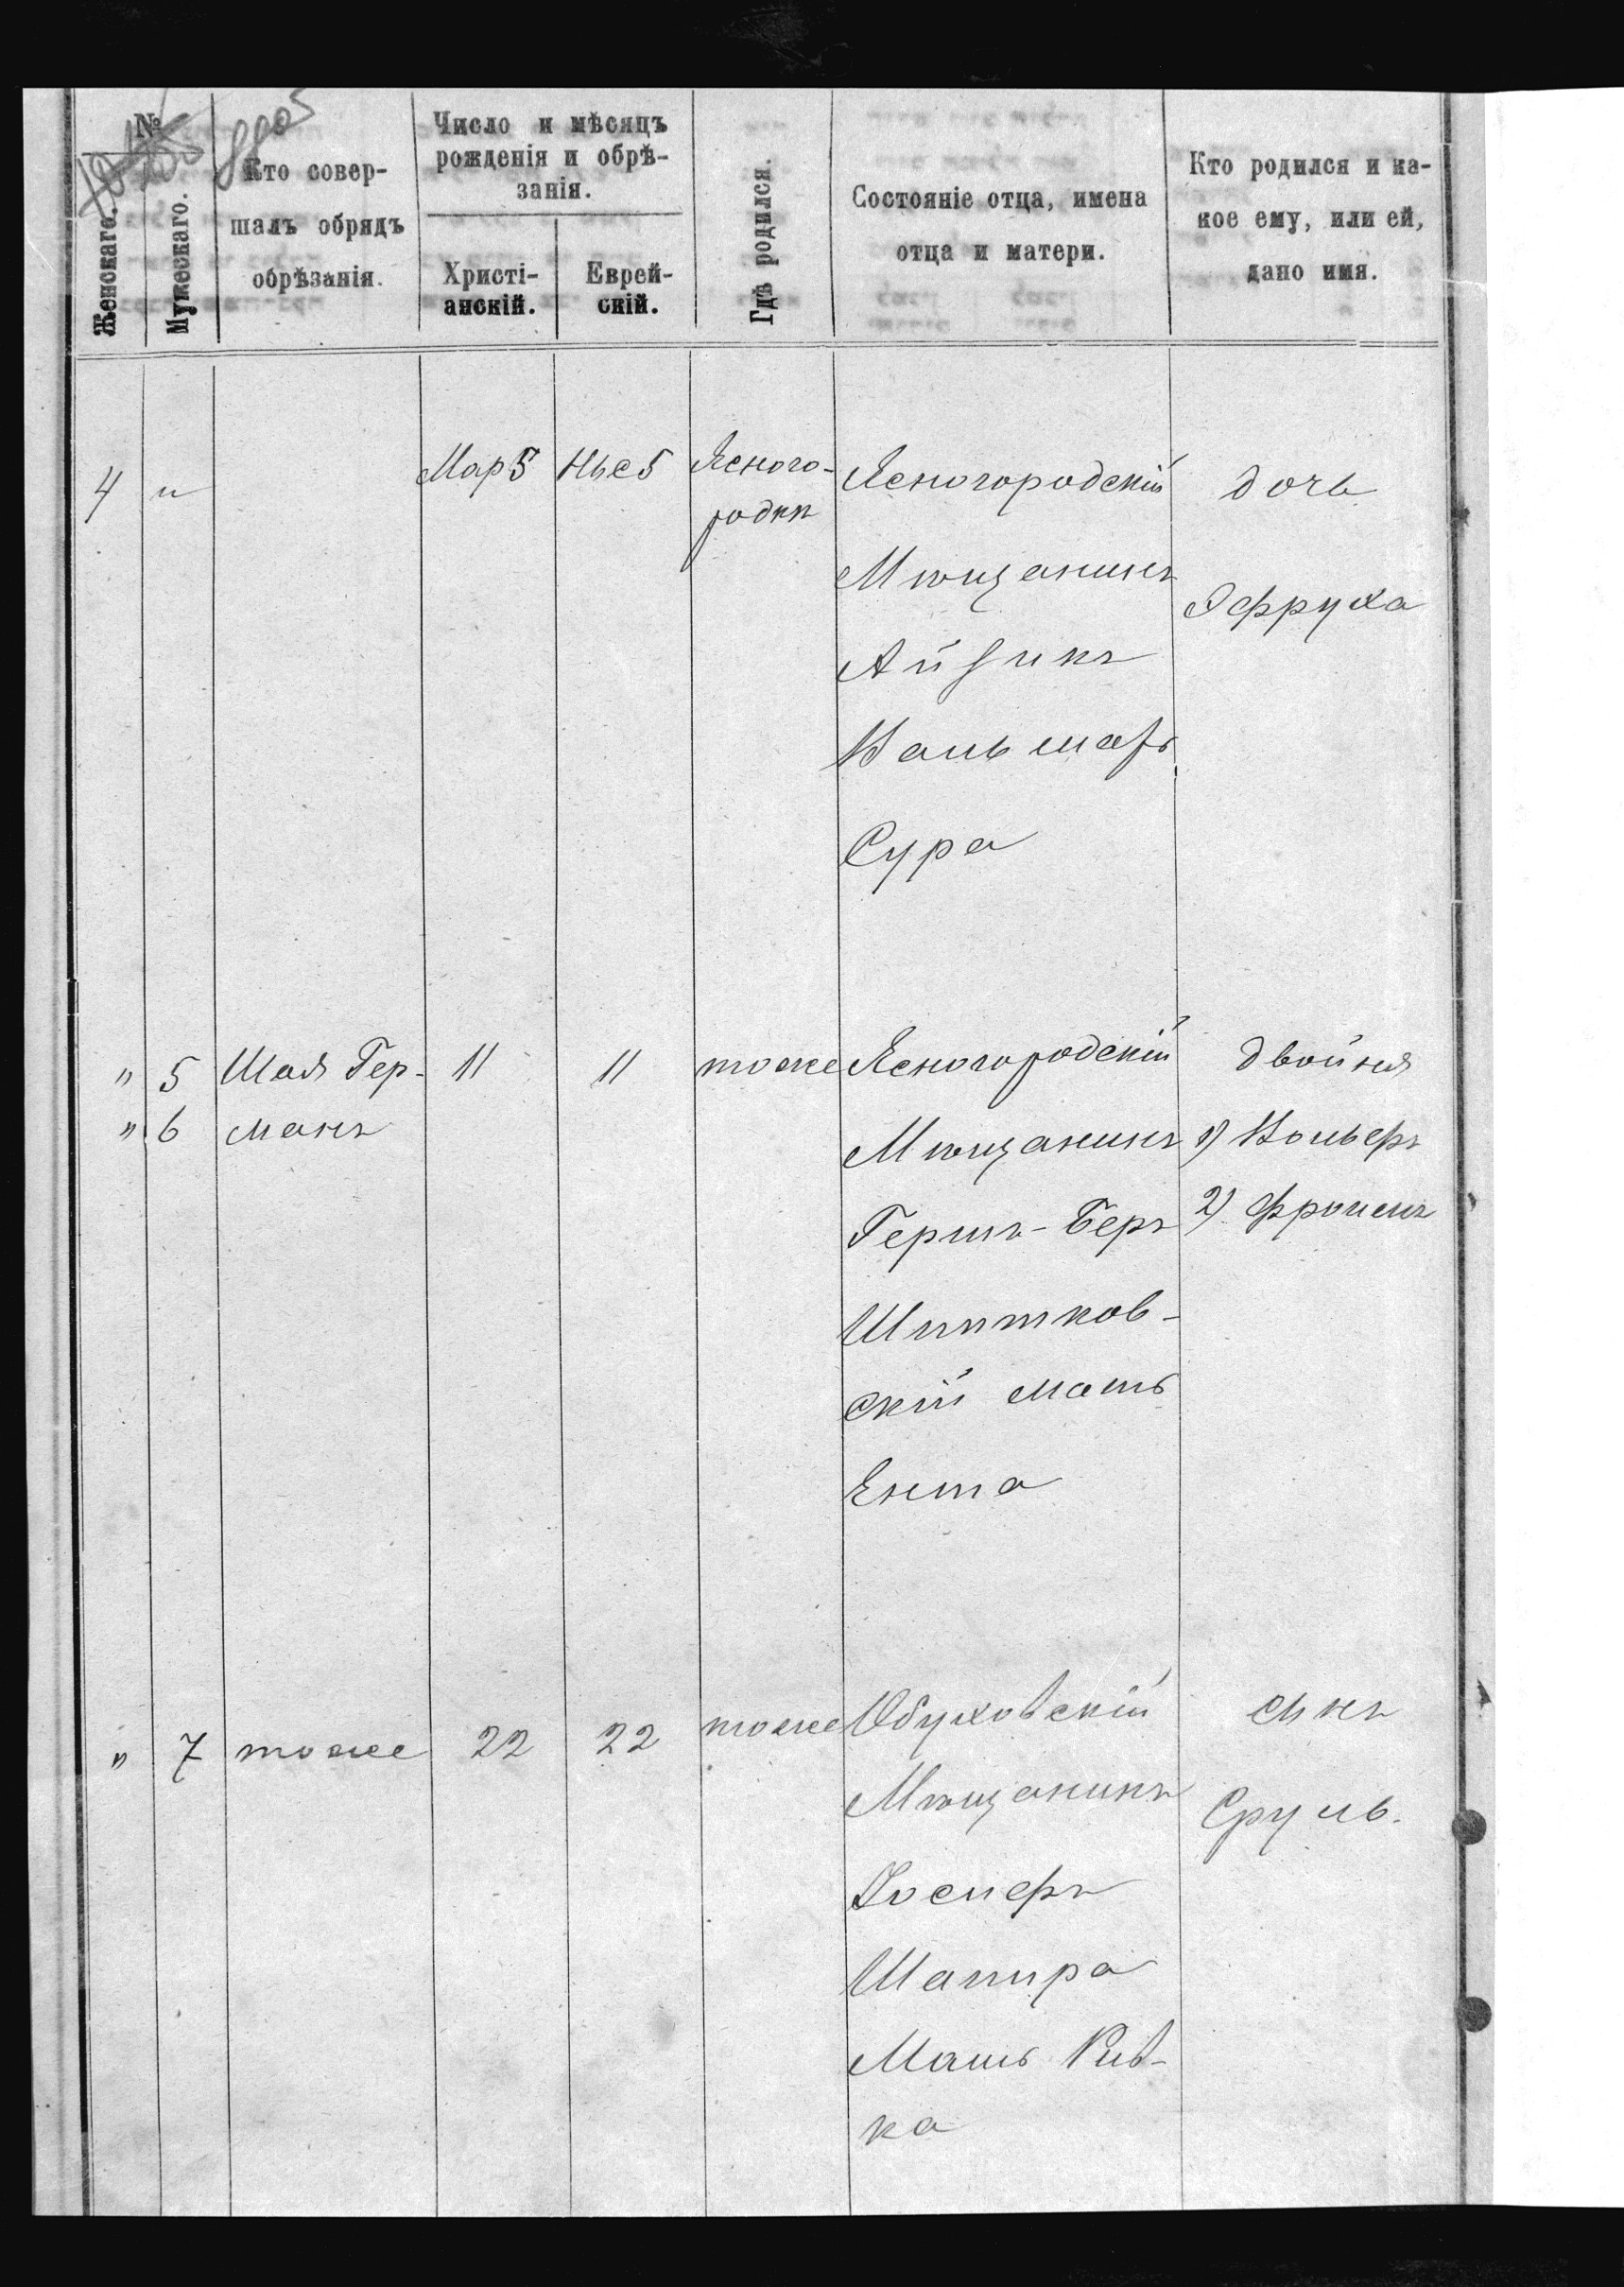 №
Женскаго.
Мужескаго.
Кто совер-
шалъ обрядъ
обрѣзанія.
Число и мѣсяцъ
рожденія и обрѣ-
занія.
Христі-
анскій.
Еврей-
скій.
Гдѣ родился.
Состояніе отца, имена
отца и матери.
Кто родился и ка-
кое ему, или ей,
дано имя.
4 "
Мар 5
5
Ясного-
родки
Ясногородскій
Мѣщанинъ
Айзикъ
мать
Сура
дочь
Эфруха
" 5
" 6
Шая Гер-
манъ
11
11
тоже
Ясногородскій
Мѣщанинъ
Гершъ-Беръ
ский мать
Ента
двойня
1) Вольфъ
2) Фроимъ
" 7
тоже
22
22
тоже
Обуховскій
Мѣщанинъ
Іосифъ
Шапира
Мать Рив-
ка
сынъ
Сруль.